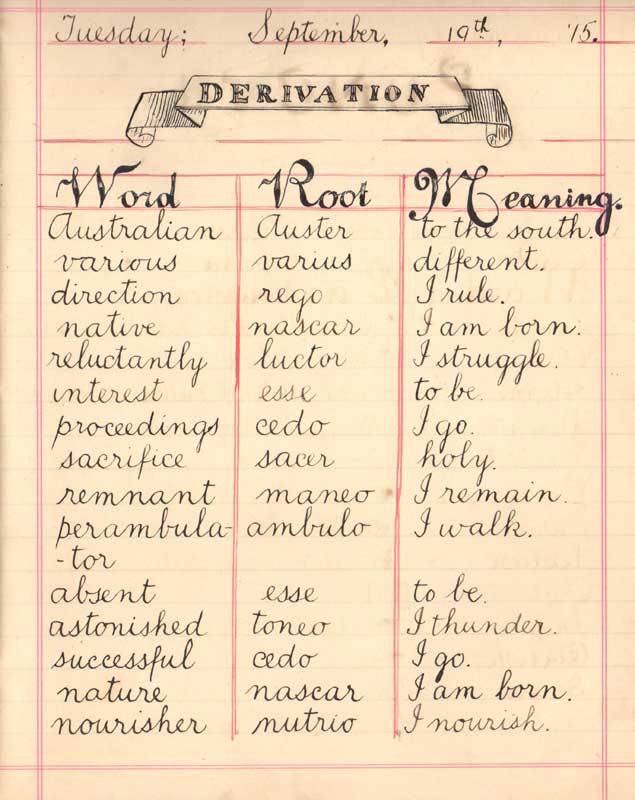 Tuesday; September, 19th, '15.
DERIVATION
Word Root Meaning.
Australian Auster to the south.
various varius different.
direction rego I rule.
native nascar I am born.
reluctantly luctor I struggle.
interest esse to be.
proceedings cedo I go.
sacrifice sacer holy.
remnant maneo I remain.
perambula- ambulo I walk.
-tor
absent esse to be.
astonished toneo I thunder.
successful cedo I go.
nature nascar I am born.
nourisher nutrio I nourish.